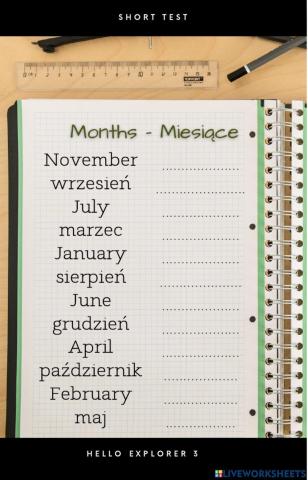 SHORT TEST
Months - Miesiące
November
wrzesień
July
marzec
January
sierpień
June
grudzień
April
październik
February
maj
HELLO EXPLORER 3
LIVEWORKSHEETS